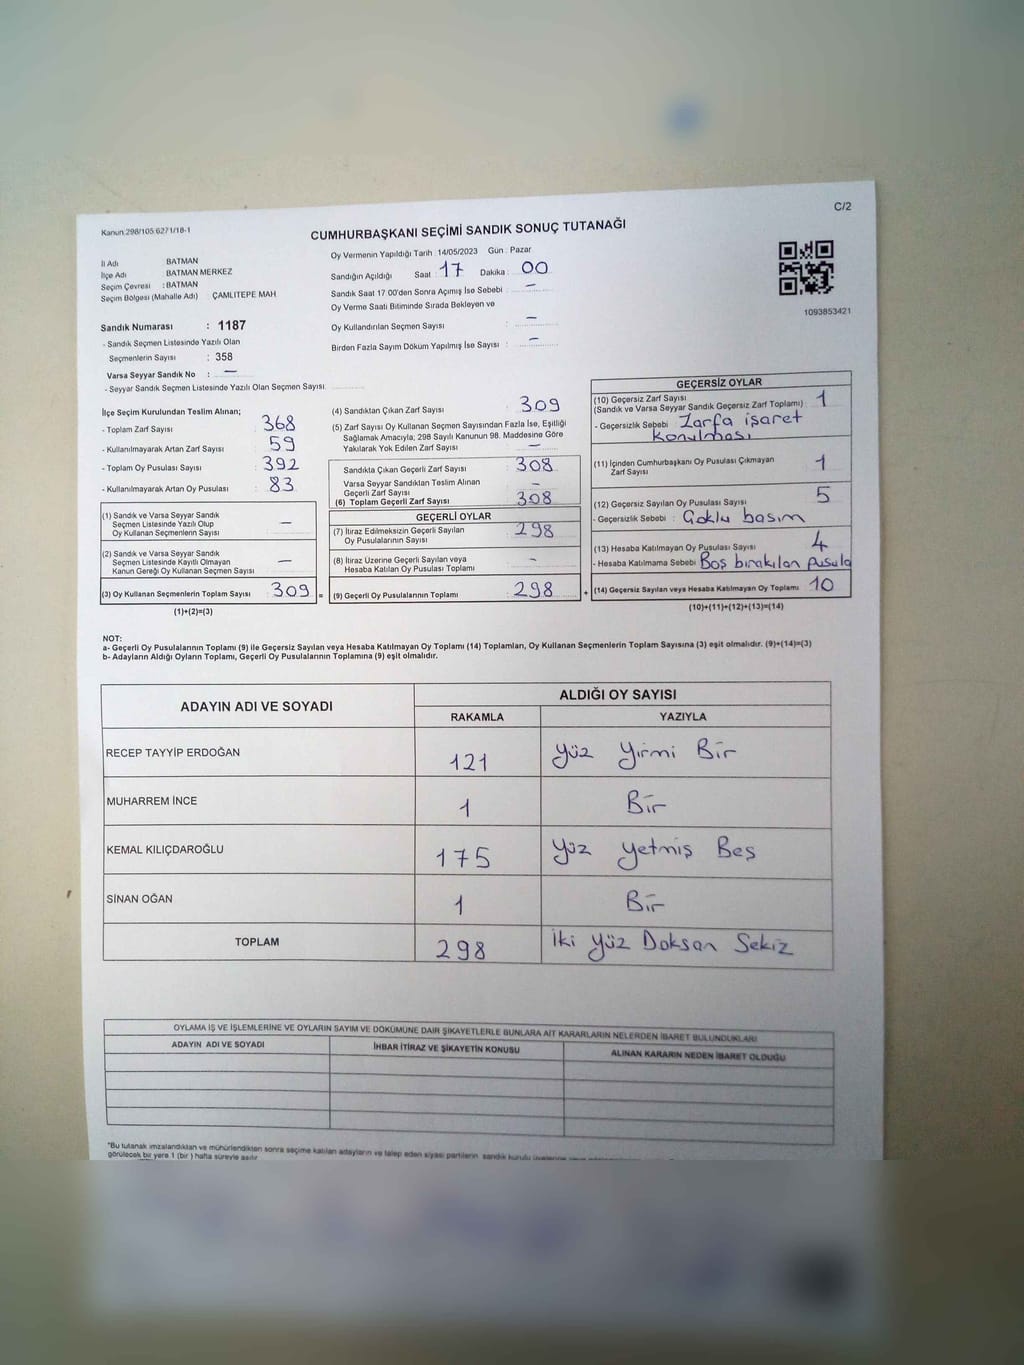 C/2
Kanun.298/105.6271/18-1
CUMHURBAŞKANI SEÇİMİ SANDIK SONUÇ TUTANAĞI
İl Adı BATMAN
İlçe Adı BATMAN MERKEZ
Seçim Çevresi : BATMAN
Seçim Bölgesi (Mahalle Adı) ÇAMLITEPE MAH
Sandık Numarası : 1187
- Sandık Seçmen Listesinde Yazılı Olan
Seçmenlerin Sayısı : 358
Varsa Seyyar Sandık No : —
- Seyyar Sandık Seçmen Listesinde Yazılı Olan Seçmen Sayısı
Oy Vermenin Yapıldığı Tarih : 14/05/2023 Gün : Pazar
Sandığın Açıldığı Saat : 17 Dakika : 00
Sandık Saat 17:00'den Sonra Açımış İse Sebebi : —
Oy Verme Saati Bitiminde Sırada Bekleyen ve
Oy Kullandırılan Seçmen Sayısı : —
Birden Fazla Sayım Döküm Yapılmış İse Sayısı : —
1093853421
İlçe Seçim Kurulundan Teslim Alınan;
- Toplam Zarf Sayısı : 368
- Kullanılmayarak Artan Zarf Sayısı : 59
- Toplam Oy Pusulası Sayısı : 392
- Kullanılmayarak Artan Oy Pusulası : 83
(1) Sandık ve Varsa Seyyar Sandık
Seçmen Listesinde Yazılı Olup
Oy Kullanan Seçmenlerin Sayısı —
(2) Sandık ve Varsa Seyyar Sandık
Seçmen Listesinde Kayıtlı Olmayan
Kanun Gereği Oy Kullanan Seçmen Sayısı —
(3) Oy Kullanan Seçmenlerin Toplam Sayısı 309 =
(1)+(2)=(3)
(4) Sandıktan Çıkan Zarf Sayısı : 309
(5) Zarf Sayısı Oy Kullanan Seçmen Sayısından Fazla İse, Eşitliği
Sağlamak Amacıyla; 298 Sayılı Kanunun 98. Maddesine Göre
Yakılarak Yok Edilen Zarf Sayısı : —
Sandıkta Çıkan Geçerli Zarf Sayısı : 308
Varsa Seyyar Sandıktan Teslim Alınan
Geçerli Zarf Sayısı : —
(6) Toplam Geçerli Zarf Sayısı : 308
GEÇERLİ OYLAR
(7) İtiraz Edilmeksizin Geçerli Sayılan
Oy Pusulalarının Sayısı : 298
(8) İtiraz Üzerine Geçerli Sayılan veya
Hesaba Katılan Oy Pusulası Toplamı : —
(9) Geçerli Oy Pusulalarının Toplamı : 298 +
GEÇERSİZ OYLAR
(10) Geçersiz Zarf Sayısı
(Sandık ve Varsa Seyyar Sandık Geçersiz Zarf Toplamı) : 1
- Geçersizlik Sebebi : Zarfa işaret
konulması
(11) İçinden Cumhurbaşkanı Oy Pusulası Çıkmayan
Zarf Sayısı : 1
(12) Geçersiz Sayılan Oy Pusulası Sayısı : 5
- Geçersizlik Sebebi : Çoklu basım
(13) Hesaba Katılmayan Oy Pusulası Sayısı : 4
- Hesaba Katılmama Sebebi : Boş bırakılan pusula
(14) Geçersiz Sayılan veya Hesaba Katılmayan Oy Toplamı : 10
(10)+(11)+(12)+(13)=(14)
NOT:
a- Geçerli Oy Pusulalarının Toplamı (9) ile Geçersiz Sayılan veya Hesaba Katılmayan Oy Toplamı (14) Toplamları, Oy Kullanan Seçmenlerin Toplam Sayısına (3) eşit olmalıdır. (9)+(14)=(3)
b- Adayların Aldığı Oyların Toplamı, Geçerli Oy Pusulalarının Toplamına (9) eşit olmalıdır.
ADAYIN ADI VE SOYADI ALDIĞI OY SAYISI
RAKAMLA YAZIYLA
RECEP TAYYİP ERDOĞAN 121 Yüz Yirmi Bir
MUHARREM İNCE 1 Bir
KEMAL KILIÇDAROĞLU 175 Yüz yetmiş Beş
SİNAN OĞAN 1 Bir
TOPLAM 298 İki Yüz Doksan Sekiz
OYLAMA İŞ VE İŞLEMLERİNE VE OYLARIN SAYIM VE DÖKÜMÜNE DAİR ŞİKAYETLERLE BUNLARA AİT KARARLARIN NELERDEN İBARET BULUNDUKLARI
ADAYIN ADI VE SOYADI İHBAR İTİRAZ VE ŞİKAYETİN KONUSU ALINAN KARARIN NEDEN İBARET OLDUĞU
"Bu tutanak imzalandıktan ve mühürlendikten sonra seçime katılan adayların ve talep eden siyasi partilerin sandık kurulu
görülecek bir yere 1 (bir) hafta süreyle asılır.